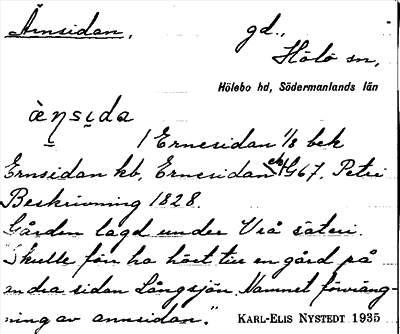 Ärnsidan, gd.,
Hölö sn,
Hölebo hd, Södermanlands län
ὲṇsi̭da
/ Ernesidan 1/8 bek
Ernsidan kb, Ernesidan ek G67. Petri
Beskrivning 1828.
Gården lagd under Vrå säteri.
Skulle förr ha hört till en gård på
andra sidan Långsjön. Namnet förväng-
ning av annsidan."
KARL-ELIS NYSTEDT 1935